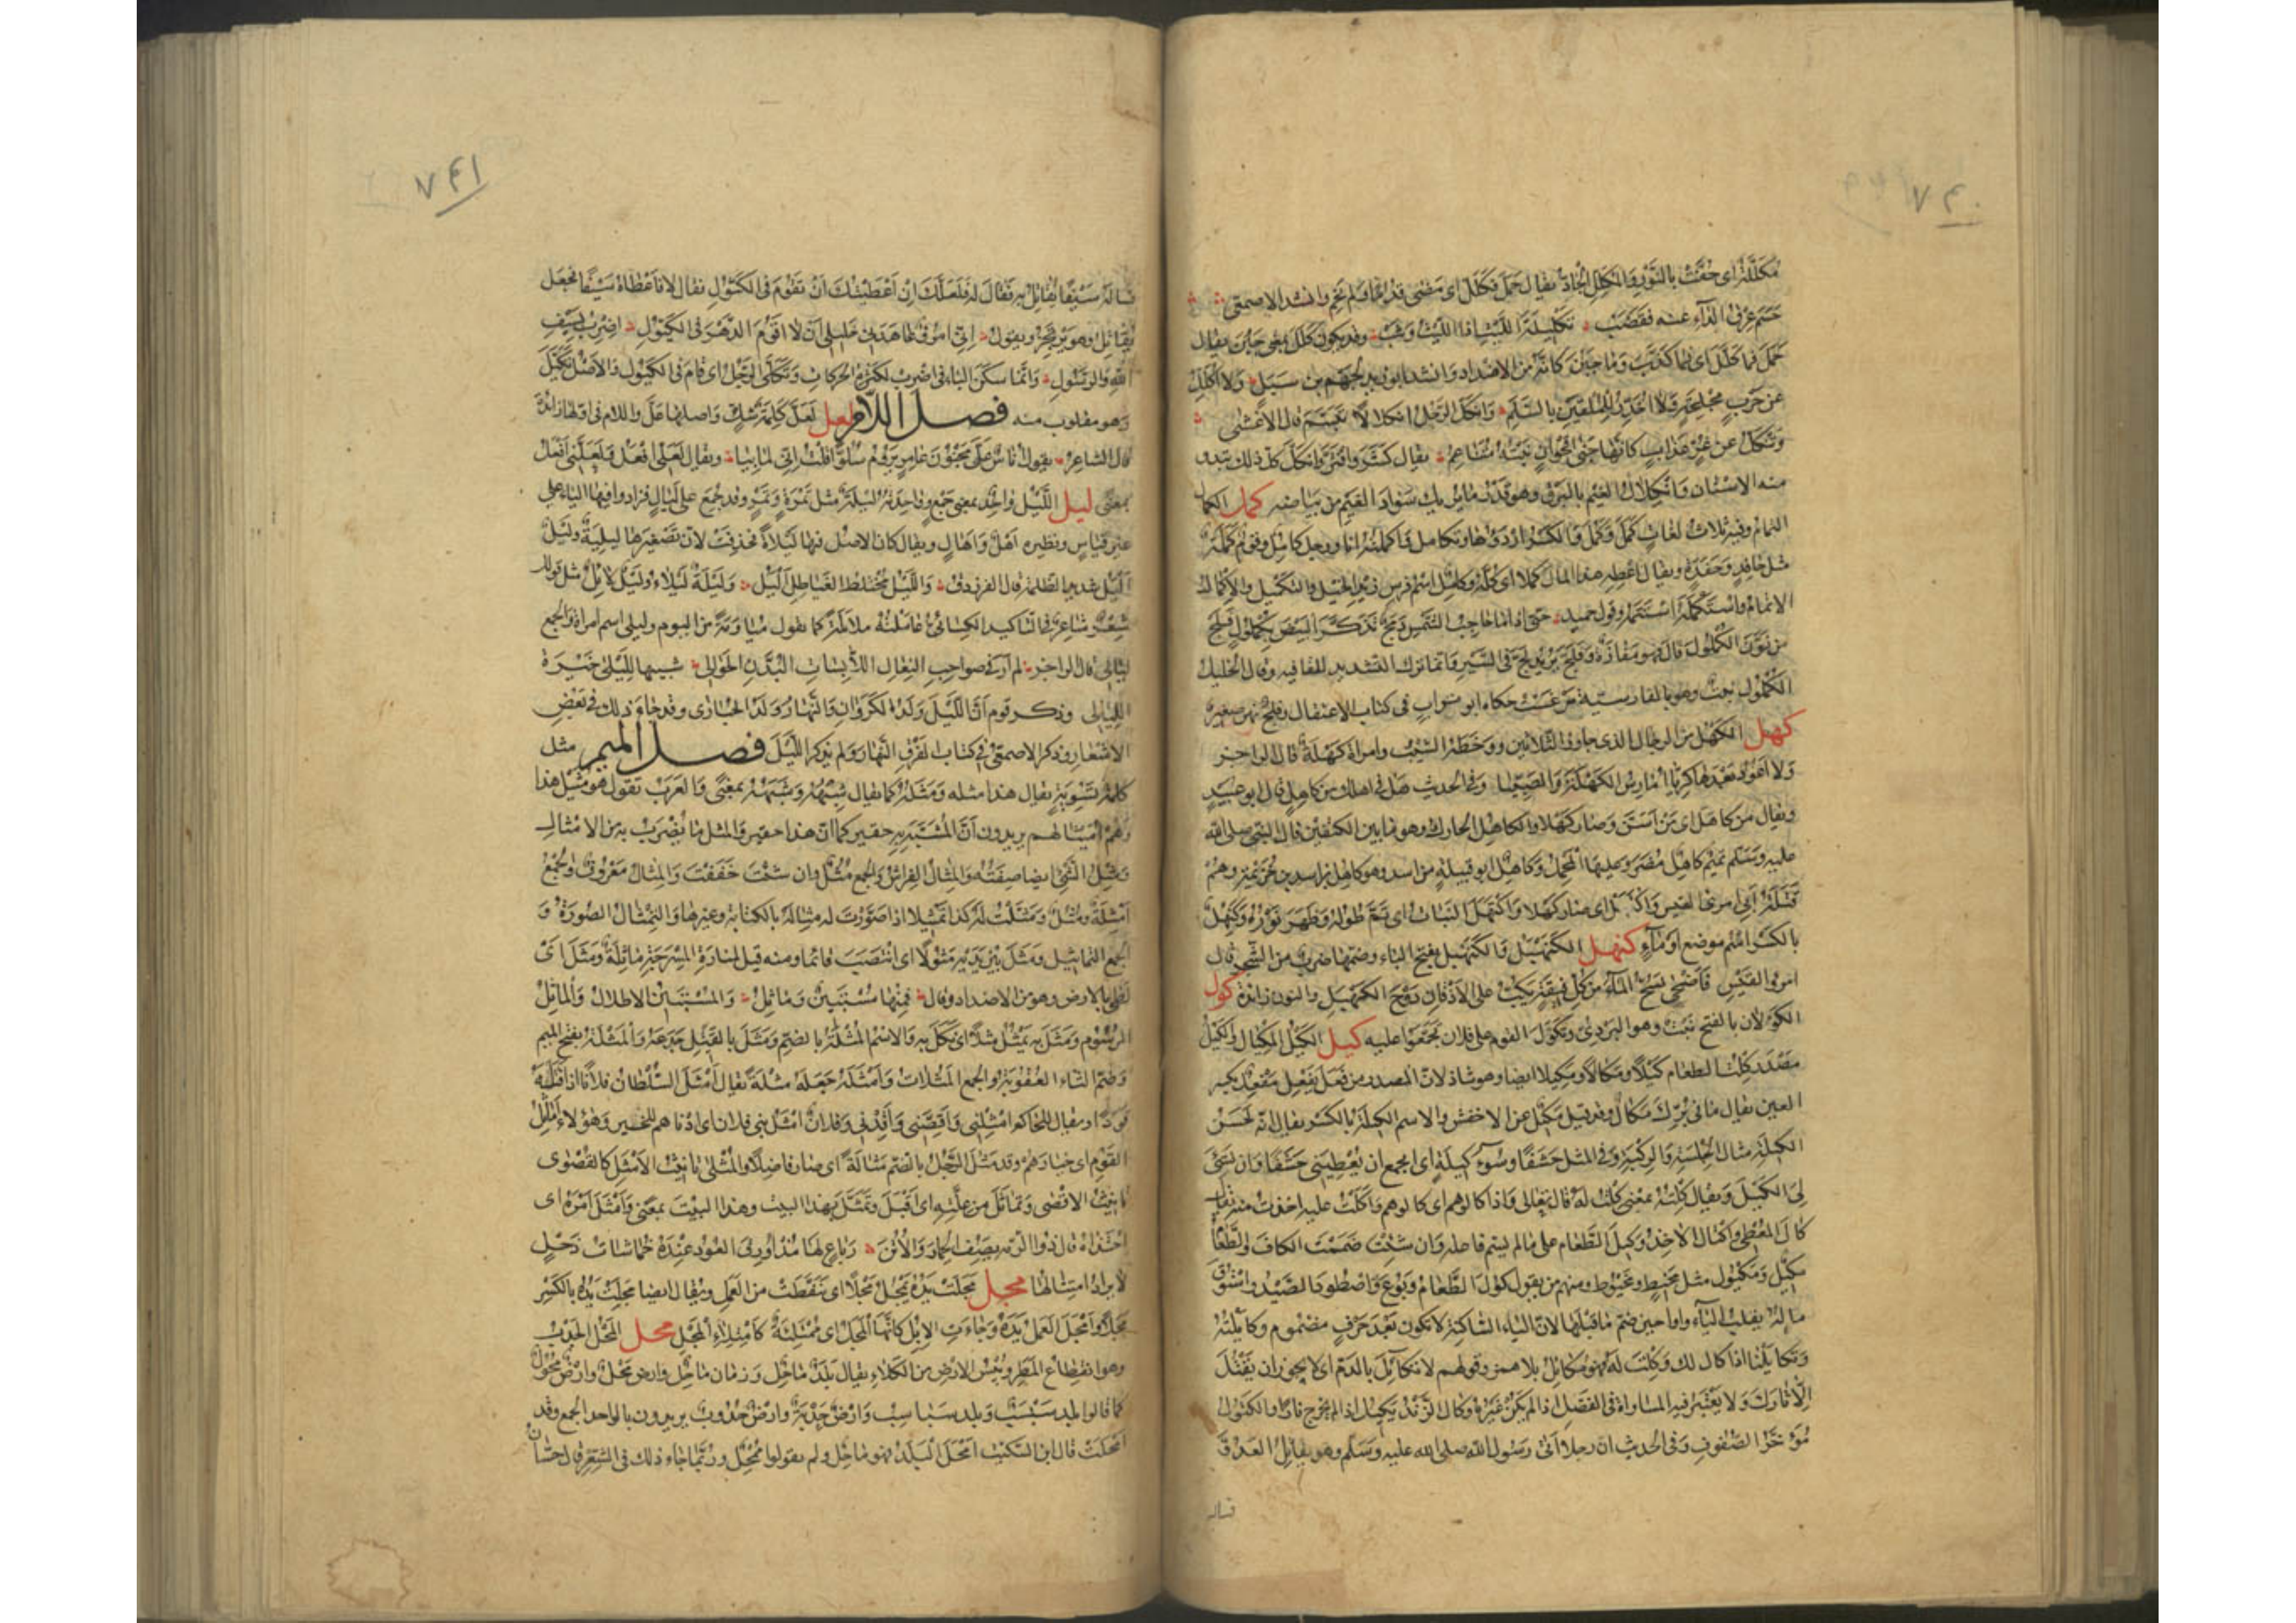 ٧٤٠
مُكَلَّلَةٌ اى حُفَّتْ بالنَّوْرِ والمُكَلِّلُ الجَادُّ يقال حَمَلَ فكَلَّلَ اى مَضَى قُدُمًا ولم يَخِمْ وانشد الاصمعى
حَسَمَ عِرْقَ الدَّآءِ عنه فقَضَبْ تَكْلِيلَةَ اللَّيْثِ اذا اللَّيْثُ وَثَبْ وقد يكون كَلَّلَ بمعنى جَبُنَ يقال
حَمَلَ فما كَلَّلَ اى فما كَذَبَ وما جَبُنَ كانّه من الاضداد وانشد ابو زيد لجَهْمِ بن سَبَلٍ ولا اُكَلِّلُ
عن حَرْبٍ مُجَلِّحَةٍ ولا اُخَدِّرُ للمُلْقِينَ بالسَّلَمِ وانْكَلَّ الرَّجُلُ انْكِلالًا تَبَسَّمَ قال الاعشى
وتَنْكَلُّ عن غُرٍّ عِذابٍ كانّها جَنَى اُقْحُوانٍ نَبْتُه مُتَناعِمُ يقال كَشَرَ وافْتَرَّ وانْكَلَّ كلّ ذلك تبدو
منه الاسنان وانْكِلالُ الغَيْمِ بالبَرْقِ وهو قَدْرُ ما يُرِيكَ سَوادَ الغَيْمِ من بياضه كمل الكمال
التمام وفيه ثلاث لغات كَمَلَ وكَمُلَ وكَمِلَ والكَسْرُ اَرْدَؤُها وتكامل واكملتُه انا ورجل كامِلٌ وقوم كَمَلَةٌ
مثل حافِدٍ وحَفَدَةٍ ويقال اَعْطِهِ هذا المال كَمَلًا اى كلَّه وكامِلٌ اسم فرس زيد الخيل والتكميل والاكمال
الاتمام واسْتَكْمَلَهُ اسْتَتَمَّهُ وقول حميد حتى اذا ما حاجِبُ الشمسِ دَمَجْ تَذَكَّرَ البِيضَ بكُمْلُولٍ فَلَجْ
من نَوَّنَ الكُمْلُولَ قال هو مَفازَةٌ وفَلَجَ يريد لَجَّ فى السَّيْرِ وانما ترك التشديد للقافيه وقال الخليل
الكُمْلُولُ نبت وهو بالفارسية بَرْغَسْت حكاه ابو تراب فى كتاب الاعتقاب وفلج نهر صغير
كهل الكَهْلُ من الرجال الذى جاوز الثلاثين ووَخَطَهُ الشَّيْبُ وامراة كَهْلَةٌ قال الراجز
ولا اَعُودُ بَعْدَها كَرِيَّا اُمارِسُ الكَهْلَةَ والصَّبِيَّا وفى الحديث هل فى اهلك من كاهِلٍ قال ابو عبيد
ويقال من كاهَلَ اى مَنْ اَسَنَّ وصار كَهْلًا والكاهِلُ الحارِكُ وهو ما بين الكتفين قال النبى صلى الله
عليه وسلم تميم كاهِلُ مُضَرَ وعليها المَحْمِلُ وكاهِلٌ ابو قبيلة من اسد وهو كاهل بن اسد بن خزيمة وهم
قَتَلَةُ اَبِى امرئ القيس واكتهل اى صار كَهْلًا واكْتَهَلَ النَّباتُ اى تَمَّ طُولُه وظَهَرَ نَوْرُه وكِنْهِلٌ
بالكسر اسم موضع او مآءٍ كنهبل الكَنَهْبَلُ والكَنَهْبُلُ بفتح الباء وضمّها ضرب من الشجر قال
امرؤ القيس فاَضْحَى يَسُحُّ المآءَ من كُلِّ فِيقَةٍ يَكُبُّ على الاَذْقانِ دَوْحَ الكَنَهْبَلِ والنون زائدة كول
الكَوْلانُ بالفتح نَبْت وهو البَرْدِىُّ وتَكَوَّلَ القوم على فلان تَجَمَّعُوا عليه كيل الكَيْلُ المِكْيالُ والكَيْلُ
مَصْدَرُ كِلْتُ الطعام كَيْلًا ومَكالًا ومَكِيلًا ايضا وهو شاذ لانّ المصدر من فَعَلَ يَفْعِلُ مَفْعَلٌ بكسر
العين يقال ما فى بُرِّكَ مَكالٌ وقد قيل مَكِيلٌ عن الاخفش والاسم الكِيلَةُ بالكسر يقال انّه لحَسَنُ
الكِيلَةِ مثال الجِلْسَةِ والرِّكْبَةِ وفى المثل حَشَفًا وسُوءَ كِيلَةٍ اى اتجمع ان تُعْطِيَنى حَشَفًا وان تُسِئَ
لِىَ الكَيْلَ ويقال كِلْتُهُ بمعنى كِلْتُ لَهُ قال تعالى واذا كالوهم اى كالوا لهم واكْتَلْتُ عليه اخذت منه يقال
كالَ المُعْطِى واكْتالَ الآخِذُ وكِيلَ الطَّعامُ على ما لم يسم فاعله وان شئت ضممت الكاف والطعامُ
مَكِيلٌ ومَكْيُولٌ مثل مَخِيطٍ ومَخْيُوطٍ ومنهم من يقول كُولَ الطَّعامُ وبُوعَ واصْطُودَ الصَّيْدُ واسْتُوقَ
مالُهُ بقلب اليآء واوا حين ضمّ ما قبلها لانّ الياء الساكنة لا تكون بَعْدَ حَرْفٍ مضموم وكايَلْتُهُ
وتكايَلْنا اذا كال لك وكِلْتَ له فهو مُكائِلٌ بلا همز وقولهم لا تُكايَلُ بالدم اى لا يجوز ان يُقْتَلَ
الّا ثاْرَكَ ولا يُعْتَبَرُ فيه المساواة فى الفضل اذا لم يكن غيره وكال الزَّنْدُ يَكِيلُ اذا لم يخرج نارًا والكَيُّولُ
مُؤَخَّرُ الصُّفُوفِ وفى الحديث ان رجلا اتى رسول الله صلى الله عليه وسلم وهو يقاتل العدوَّ
فساله
٧٤١
فساله سَيْفًا يُقاتِلُ به فقال له فلعلَّك ان اَعْطَيْتُكَ ان تَقُومَ فى الكَيُّولِ فقال لا فاَعْطاهُ سَيْفًا فجعل
يقاتل وهو يرتجز ويقول اِنِّى امْرُؤٌ عاهَدَنِى خَلِيلِى اَنْ لا اَقُومَ الدَّهْرَ فى الكَيُّولِ اضرب بسيفِ
اللهِ والرسولِ وانّما سكّن الباء فى اضْرِبْ لكثرة الحركات وتَكَلَّى الرَّجُلُ اى قام فى الكَيُّولِ والاصل تَكَيَّلَ
وهو مقلوب منه فصل اللام لعل لَعَلَّ كلمة شَكٍّ واصلها عَلَّ واللام فى اولها زائدة
قال الشاعر يقول اُناسٌ عَلَّ مجنونَ عامِرٍ يَرُومُ سُلُوًّا قلتُ اِنِّى لِما بِيا ويقال لَعَلِّى اَفْعَلُ ولَعَلَّنِى اَفْعَلُ
بمعنًى ليل اللَّيْلُ واحِدٌ بمعنى جَمْعٍ وواحدته لَيْلَةٌ مثل تَمْرَةٍ وتَمْرٍ وقد جُمِعَ على لَيالٍ فزادوا فيها الياء على
غير قياس ونظيره اَهْلٌ واَهالٍ ويقال كان الاصل فيها لَيْلاةً فحذفت لان تصغيرها لُيَيْلِيَةٌ ولَيْلٌ
اَلْيَلُ شديد الظلمة قال الفرزدق واللَّيْلُ مُخْتَلِطُ الغَياطِلِ اَلْيَلُ ولَيْلَةٌ لَيْلاءُ ولَيْلٌ لائِلٌ مثل قولك
شِعْرٌ شاعِرٌ فى التاكيد الكسائى عامَلْتُهُ مُلايَلَةً كما تقول مُياوَمَةً من اليوم وليلى اسم امراة والجمع
لَيالِى قال الراجز لم اَرَ فى صواحِبِ النِّعالِ اللَّابِساتِ البُدَّنِ الحَوالِى شبيها لليلى خَيْرَةَ
اللَّيالِى وذكر قوم انّ اللَّيْلَ وَلَدُ الكَرَوانِ والنَّهارَ وَلَدُ الحُبارَى وقد جاء ذلك فى بعض
الاشعار وذكر الاصمعى فى كتاب الفرق النهار ولم يذكر الليل فصل الميم مثل
كلمة تَسْوِيَةٍ يقال هذا مِثْلُه ومَثَلُه كما يقال شِبْهُه وشَبَهُه بمعنى والعَرَبُ تقول هو مُثَيْلُ هذا
وهم اُمَيْثالُهم يريدون انَّ المُشَبَّهَ به حقير كما انّ هذا حقير والمثل ما يُضْرَبُ به من الامثال
ومَثَلُ الشَّىْءِ ايضا صِفَتُهُ والمِثالُ الفِراشُ والجمع مُثُلٌ وان شئت خَفَّفْتَ والمِثالُ مَعْرُوفٌ والجمع
اَمْثِلَةٌ ومُثُلٌ ومَثَّلْتُ له كذا تَمْثِيلًا اذا صَوَّرْتَ له مِثالَهُ بالكتابة وغيرها والتِّمْثالُ الصُّورَةُ و
الجمع التماثيل ومَثَلَ بين يديه مُثُولًا اى انْتَصَبَ قائما ومنه قيل لمنارَةِ المِسْرَجَةِ ماثِلَةٌ ومَثَلَ اى
لَطِئَ بالارض وهو من الاضداد وقال فمِنْها مُسْتَبِينٌ وماثِلُ والمُسْتَبِينُ الاطلال والماثِلُ
الرُّسُومُ ومَثَلَ به يَمْثُلُ مَثْلًا اى نَكَّلَ به والاسم المُثْلَةُ بالضم ومَثَلَ بالقتيل جَدَعَهُ والمَثُلَةُ بفتح الميم
وضمّ الثاء العُقُوبَةُ والجمع المَثُلاتُ واَمْثَلَهُ جَعَلَهُ مُثْلَةً يقال اَمْثَلَ السُّلْطانُ فلانًا اذا قَتَلَهُ
قَوَدًا ويقال للحاكم اَمْثِلْنِى واَقِصَّنِى واَقِدْنِى وفلان اَمْثَلُ بنى فلان اى ادناهم للخير وهؤلاء اَماثِلُ
القَوْمِ اى خيارهم وقد مَثُلَ الرَّجُلُ بالضم مَثالَةً اى صار فاضِلًا والمُثْلَى تانيث الاَمْثَلِ كالقُصْوَى
تانيث الاقصى وتَماثَلَ من عِلَّتِهِ اى اَقْبَلَ وتَمَثَّلَ بهذا البيت وهذا البيت بمعنى وامْتَثَلَ اَمْرَهُ اى
احْتَذاهُ قال ذو الرمة يصف الحِمارَ والاُتُنَ رَباعٍ لها مُذْ اَوْرَقَ العُودُ عِنْدَهُ خُماشاتُ ذَحْلٍ
لا يُرادُ امْتِثالُها مجل مَجَلَتْ يَدُهُ تَمْجُلُ مَجْلًا اى تَنَفَّطَتْ من العَمَلِ ويقال ايضا مَجِلَتْ يَدُهُ بالكسر
مَجَلًا واَمْجَلَ العَمَلُ يَدَهُ وجاءت الابل كانّها المَجْلُ اى مُمْتَلِئَةً كامْتِلاءِ المَجْلِ محل المَحْلُ الجَدْبُ
وهو انقطاع المَطَرِ ويُبْسُ الارض من الكَلَاءِ يقال بَلَدٌ ماحِلٌ وزمان ماحِلٌ وارض مَحْلٌ وارض مُحُولٌ
كما قالوا بلد سَبْسَبٌ وبلد سَباسِبُ وارض جَدْبَةٌ وارض جُدُوبٌ يريدون بالواحد الجمع وقد
اَمْحَلَتْ قال ابن السكيت اَمْحَلَ البَلَدُ فهو ماحِلٌ ولم يقولوا مُمْحِلٌ وربّما جاء ذلك فى الشعر قال حسان